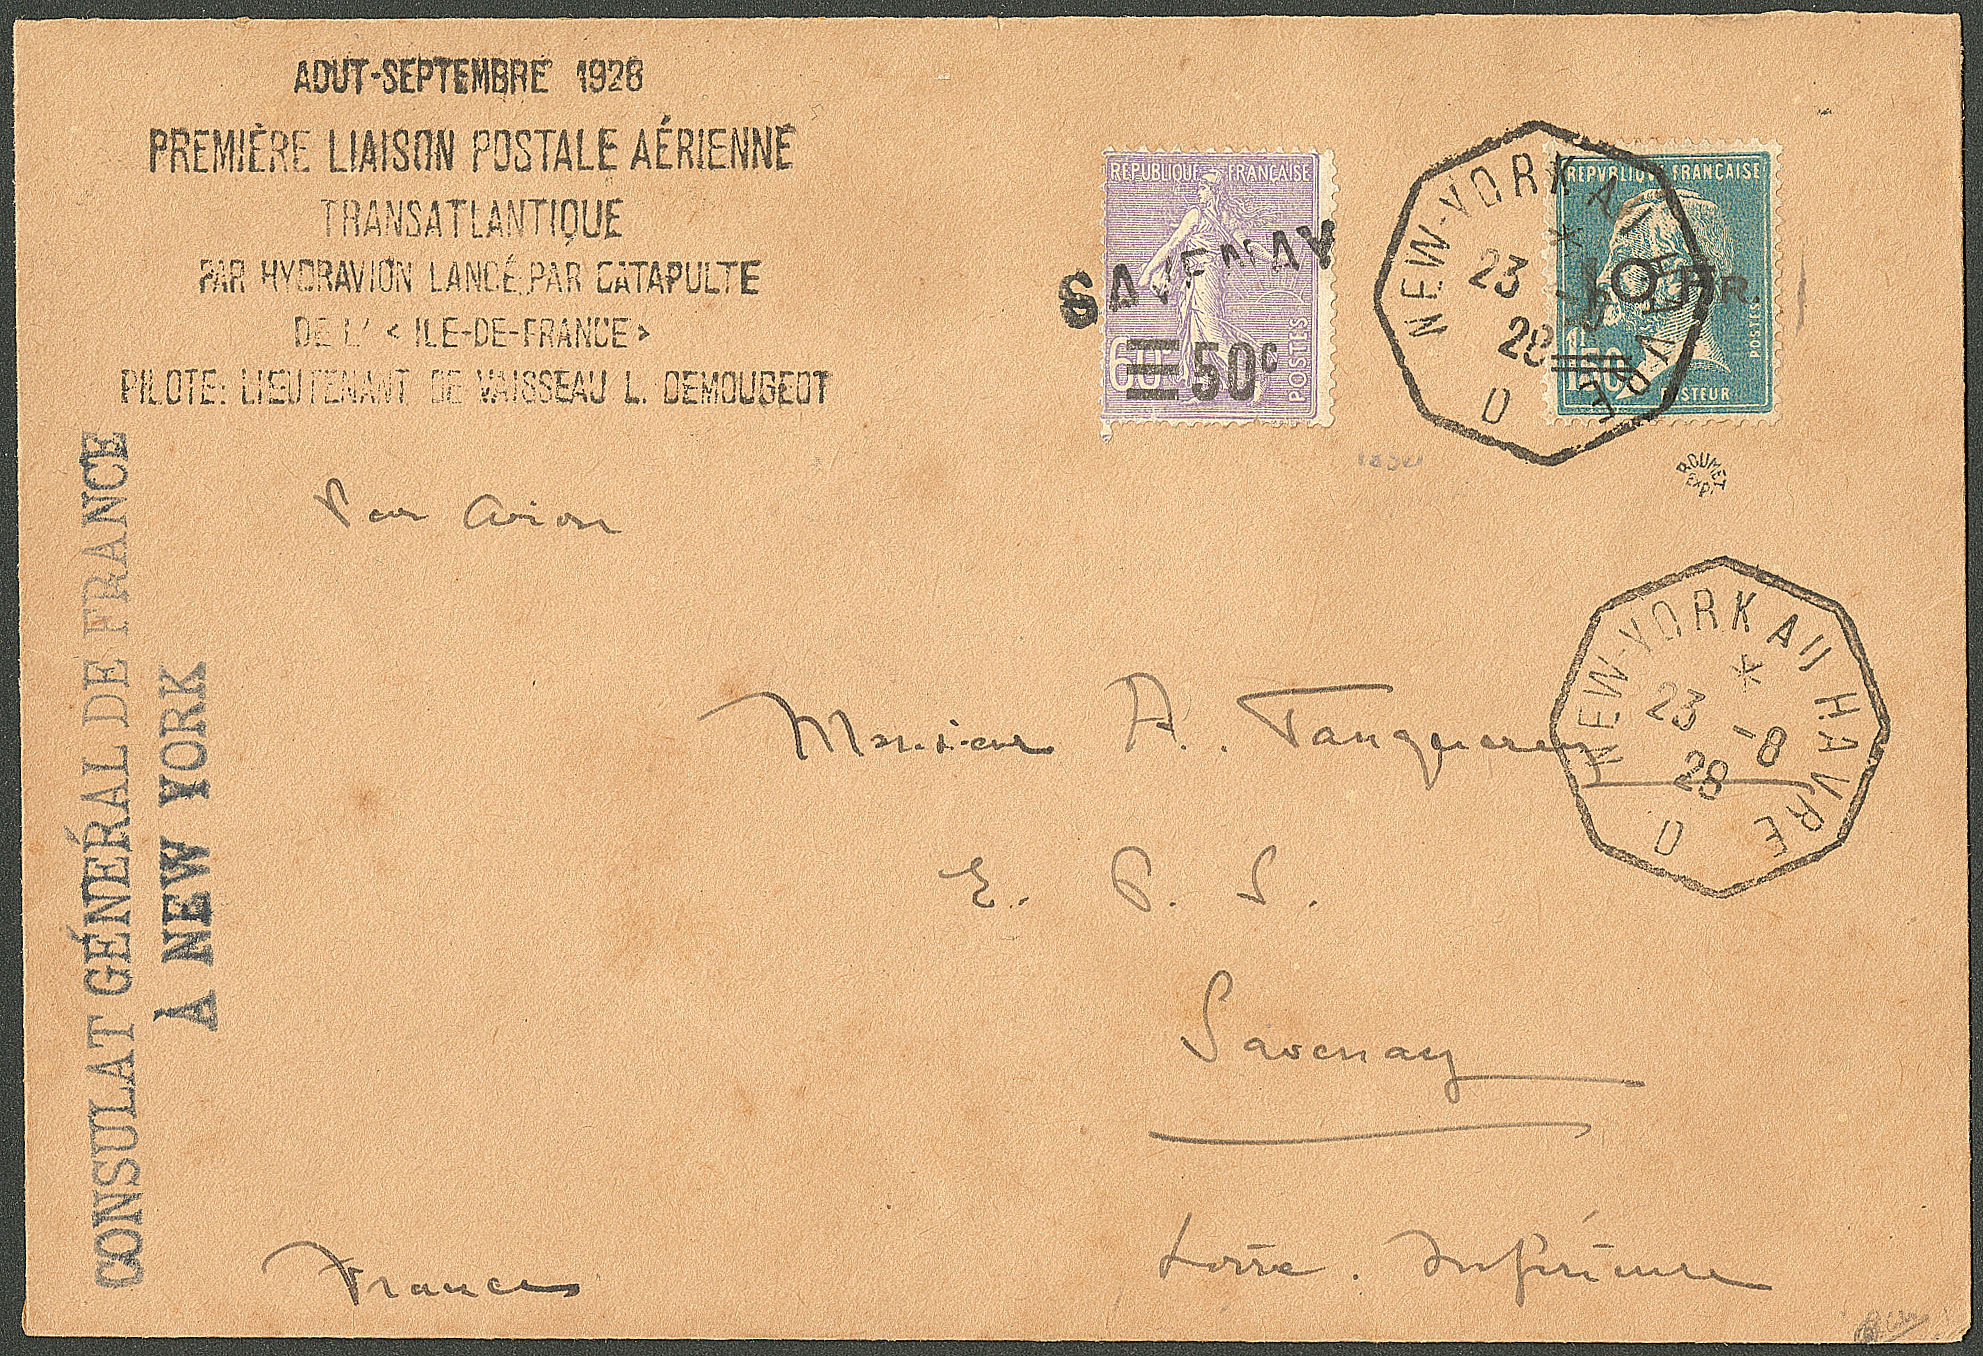 AOUT-SEPTEMBRE 1928
PREMIÈRE LIAISON POSTALE AÉRIENNE
TRANSATLANTIQUE
PAR HYDRAVION LANCÉ PAR CATAPULTE
DE L' < ILE-DE-FRANCE >
PILOTE: LIEUTENANT DE VAISSEAU L. DEMOUGEOT
REPUBLIQUE FRANÇAISE
SAVENAY
60c 50c
POSTES
NEW-YORK AU HAVRE
*
23 -8
28
D
REPVBLIQUE FRANÇAISE
10 FR.
1f.50
POSTES
PASTEUR
ROUMET
EXPT
CONSULAT GÉNÉRAL DE FRANCE
À NEW YORK
Par avion
NEW-YORK AU HAVRE
*
23 -8
28
D
Monsieur A. Tanquerey
E. P. S.
Savenay
Loire . Inférieure
France